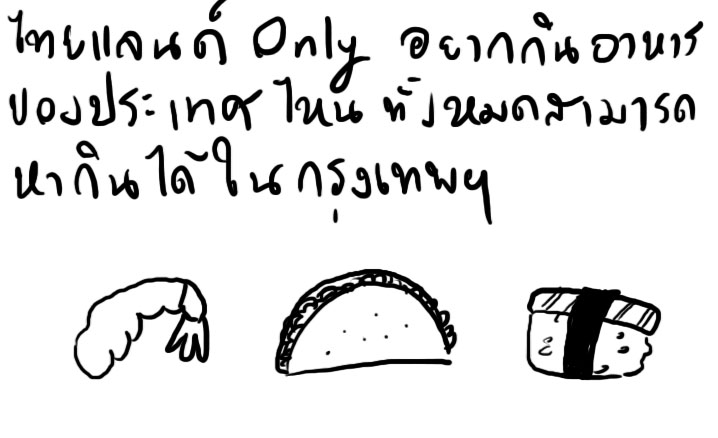 ไทยแลนด์ Only อยากกินอาหาร
ของประเทศไหน ทั้งหมดสามารถ
หากินได้ในกรุงเทพฯ